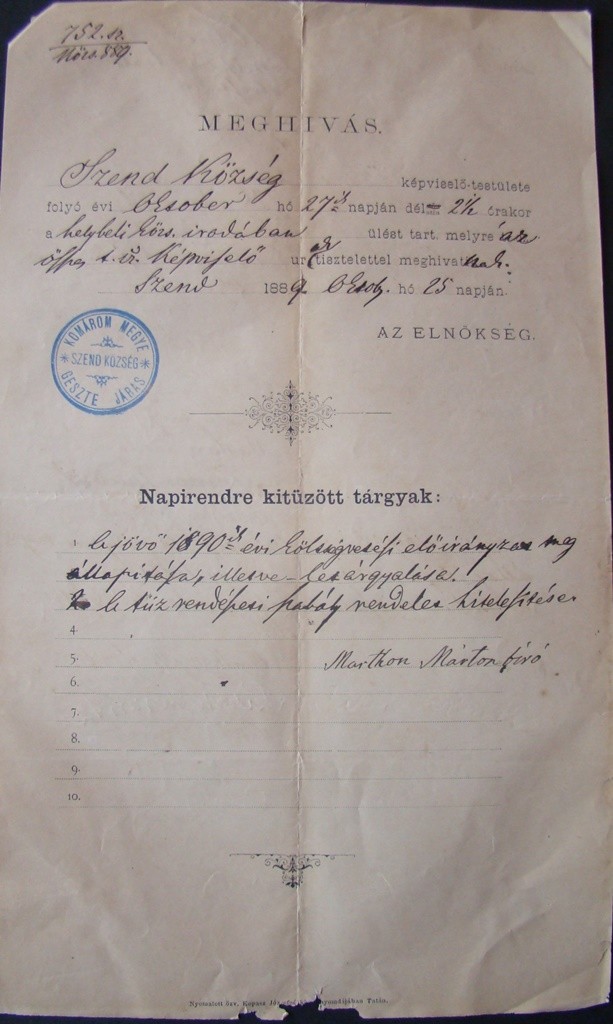 752. sz.
1889.
MEGHIVÁS.
Szend Község képviselő-testülete
folyó évi Oktober hó 27ik napján dél 2 ik órakor
a helybeli közs. irodában ülést tart. melyre az
össes t. cz. Képviselő ur ak tisztelettel meghivatnak.
Szend 1889. Oktob. hó 25 napján.
AZ ELNÖKSÉG.
KOMÁROM MEGYE
SZEND KÖZSÉG
GESZTE JÁRÁS
Napirendre kitüzött tárgyak:
1. A jövő 1890ik évi költségvetési előirányzat meg
állapitása, illetve letárgyalása.
2. A tüz rendészeti szabály rendelet hitelesitése
4.
5. Marthon Márton biró
6.
7.
8.
9.
10.
Nyomatott özv. Kopsza nyomdájában Tatán.